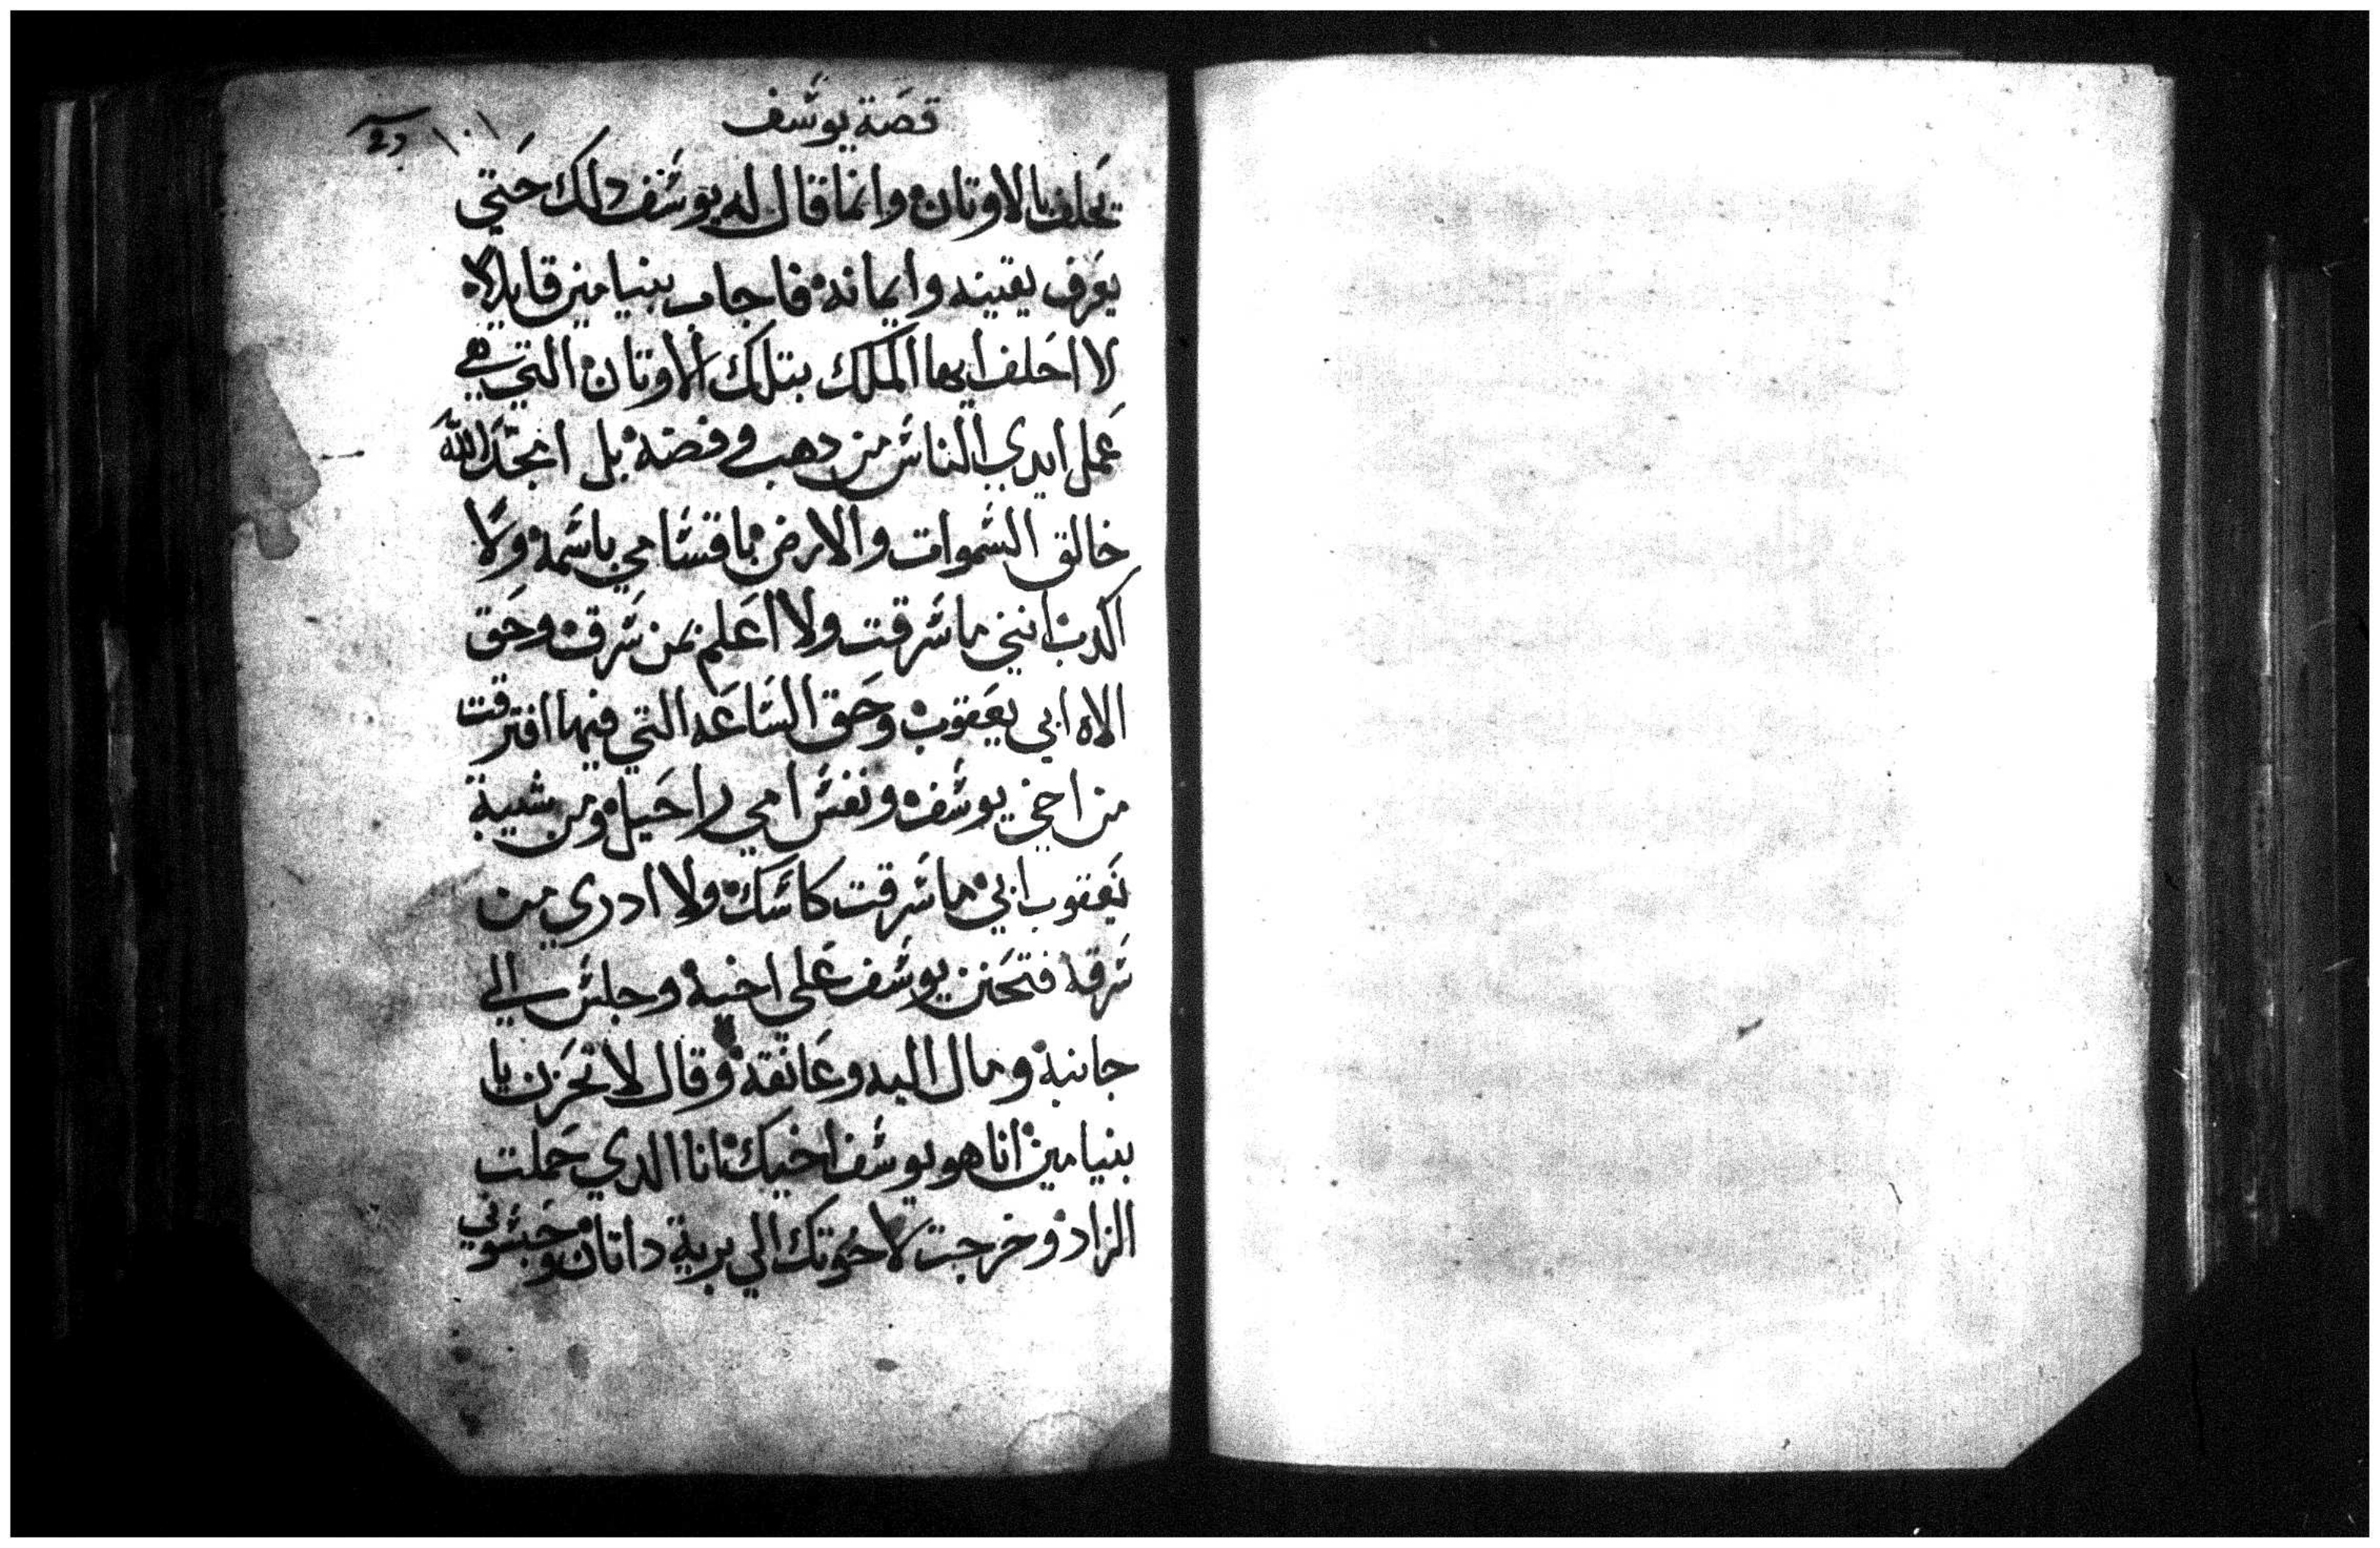 قصة يوسف
١٠١
تحلف بالاوتان وانما قال له يوسف دلك حتي
يعرف يقينه وايمانه فاجاب بنيامين قايلا
لا احلف ايها الملك بتلك الاوتان التي هي
عمل ايدي الناس من دهب وفضة بل امجد الله
خالق السموات والارض باقسامي باسمه ولا
اكدب انني ما سرقت ولا اعلم من سرق وحق
الاه ابي يعقوب وحق الساعه التي فيها افترقت
من اخي يوسف ونفس امي راحيل ومن شيبة
يعقوب ابي ما سرقت كاسك ولا ادري من
سرقه فتحنن يوسف علي اخيه وجلس الي
جانبه ومال اليه وعانقه وقال لا تحزن يا
بنيامين انا هو يوسف اخيك انا الدي حملت
الزاد وخرجت لاخوتك الي برية داتان وحبسوني